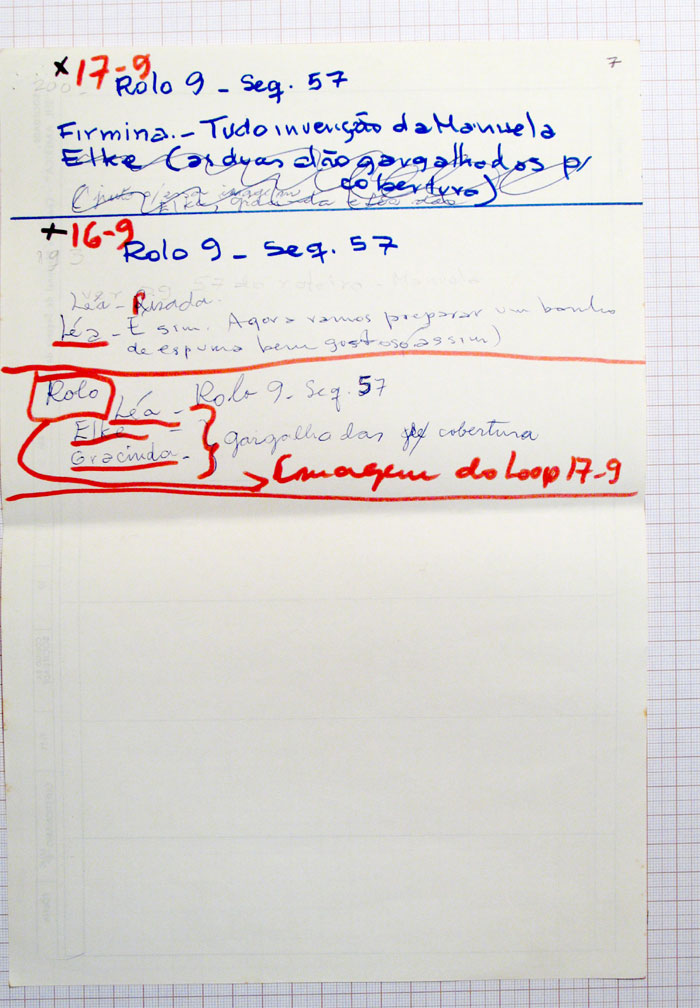 7
x 17-9 Rolo 9 - Seq. 57
Firmina. - Tudo invenção da Manuela
Elke (as duas dão gargalhadas p/
cobertura)
+ 16-9 Rolo 9 - Seq. 57
57 do roteiro - Manuela
Léa - Risada.
Léa - É sim. Agora vamos preparar um banho
de espuma bem gostoso assim)
Rolo Rolo 9 - Seq. 57
Léa -
Elke -
Gracinda - } gargalhadas p/ cobertura
Imagem do Loop 17-9